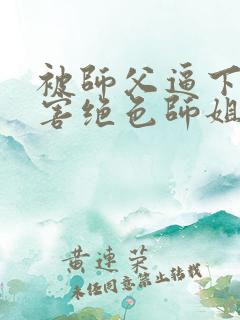 被師父逼下
害绝色師姐
黄連荣
未经同意禁止转载